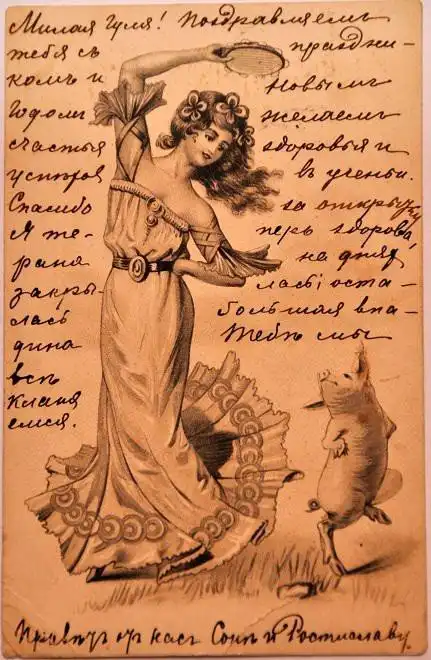 Милая Гуля! Поздравляемъ
тебя съ праздни-
комъ и Новымъ
Годомъ желаемъ
счастья здоровья и
успѣховъ въ ученьи.
Спасибо за открытку
Я те- перь здорова,
рана на дняхъ
закры- лась; оста-
лась большая впа-
дина Тебѣ мы
всѣ
кланя
емся.
Привѣтъ отъ насъ Сонѣ и Ростиславу.